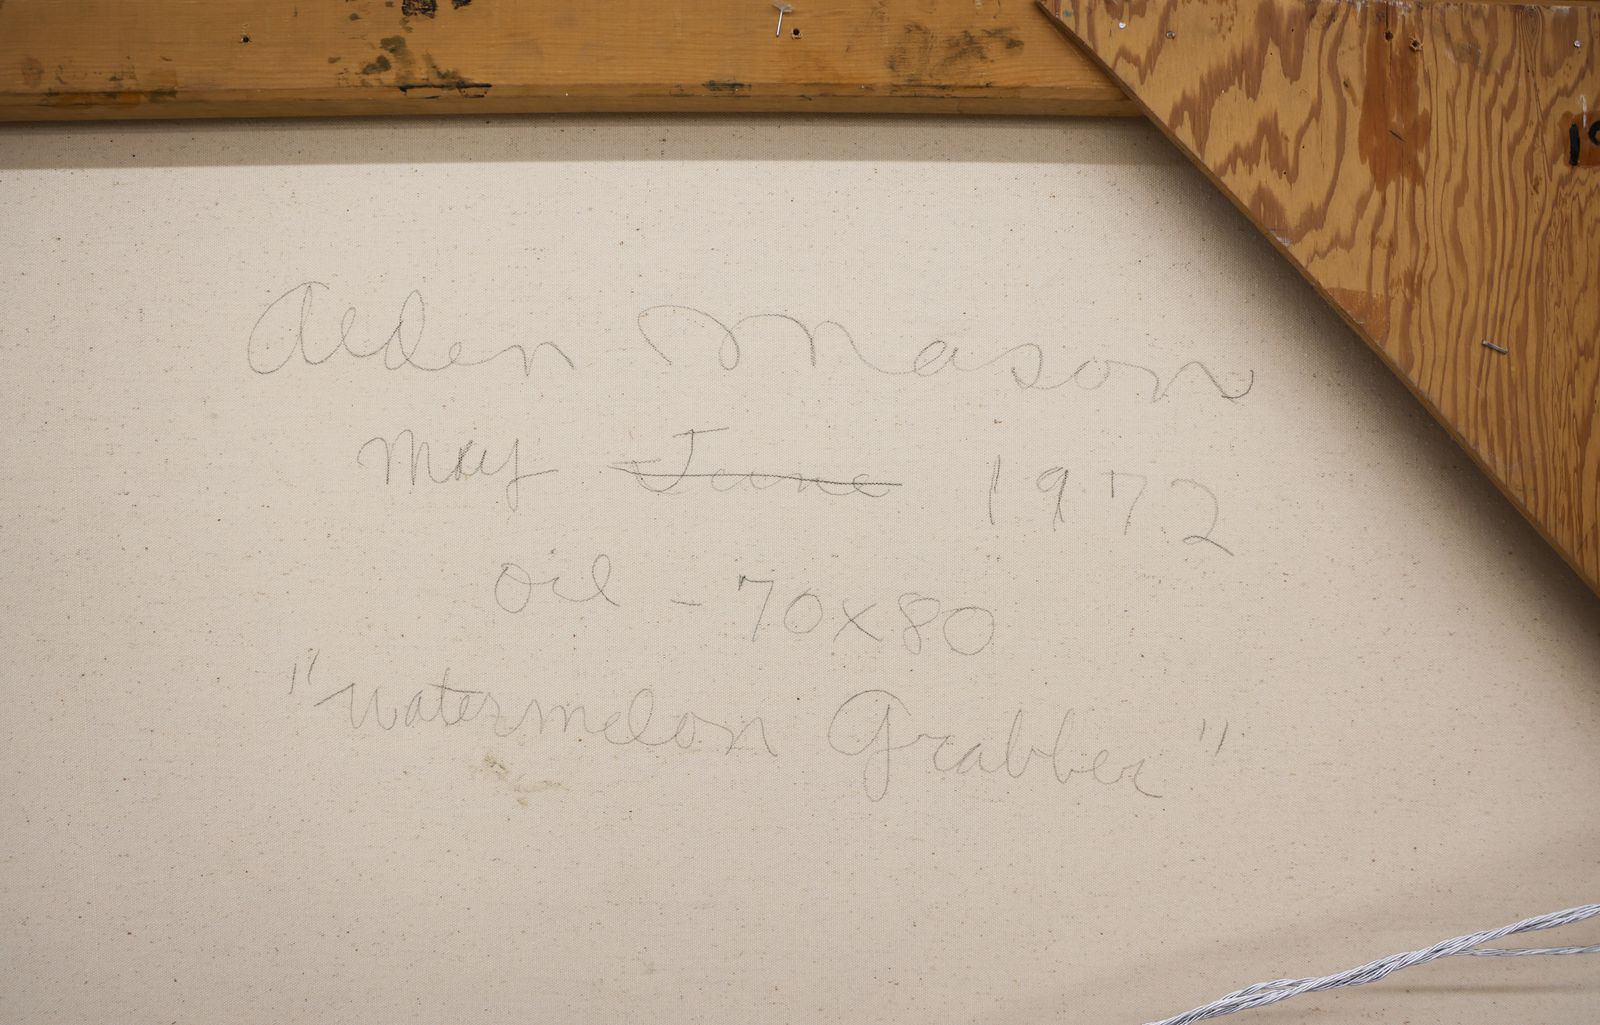 Alden Mason
May June 1972
oil - 70x80
"Watermelon Grabber"